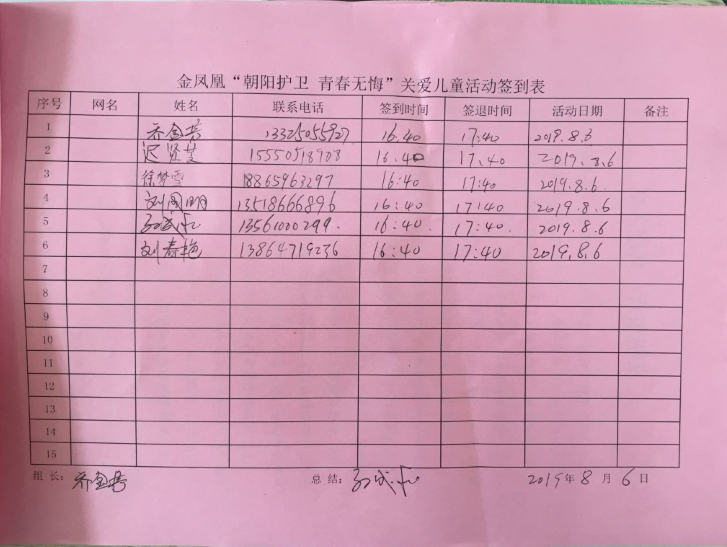 金凤凰“朝阳护卫 青春无悔”关爱儿童活动签到表
序号 网名 姓名 联系电话 签到时间 签退时间 活动日期 备注
1 13325055927 16.40 17:40 2019.8.6
2 16:40 17.40 2019.8.6
3 徐梦雪 18865963297 16:40 17:40 2019.8.6.
4 刘国明 13518666896 16:40 17:40 2019.8.6
5 13561000299. 16:40. 17:40. 2019.8.6
6 刘春艳 13864719236 16:40 17:40 2019.8.6
7
8
9
10
11
12
13
14
15
组长: 总结: 2019年8月6日